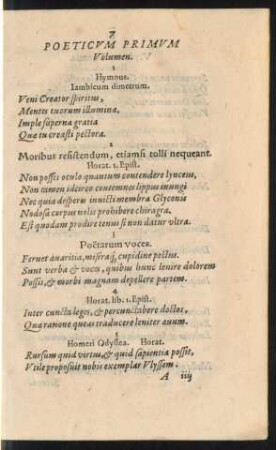 7
POETICVM PRIMVM
Volumen.
1
Hymnus.
Iambicum dimetrum.
Veni Creator spiritus,
Mentes tuorum illumina,
Imple superna gratia
Quæ tu creasti pectora.
2
Moribus resistendum, etiamsi tolli nequeant.
Horat. 1. Epist.
Non possis oculo quantum contendere lynceus,
Non tamen idcirco contemnas lippus inungi
Nec quia desperes inuicti membra Glyconis
Nodosa corpus nolis prohibere chiragra,
Est quodam prodire tenus si non datur vltra.
3
Poëtarum voces.
Feruet auaritia, miseraq́; cupidine pectus.
Sunt verba & voces, quibus hunc lenire dolorem
Possis, & morbi magnam depellere partem.
4
Horat. lib. 1. Epist.
Inter cuncta leges, & percunctabere doctos,
Qua ratione queas traducere leniter æuum.
5
Homeri Odyssea. Horat.
Rursum quid virtus, & quid sapientia possit,
Vtile proposuit nobis exemplar Vlyssem.
A iiij